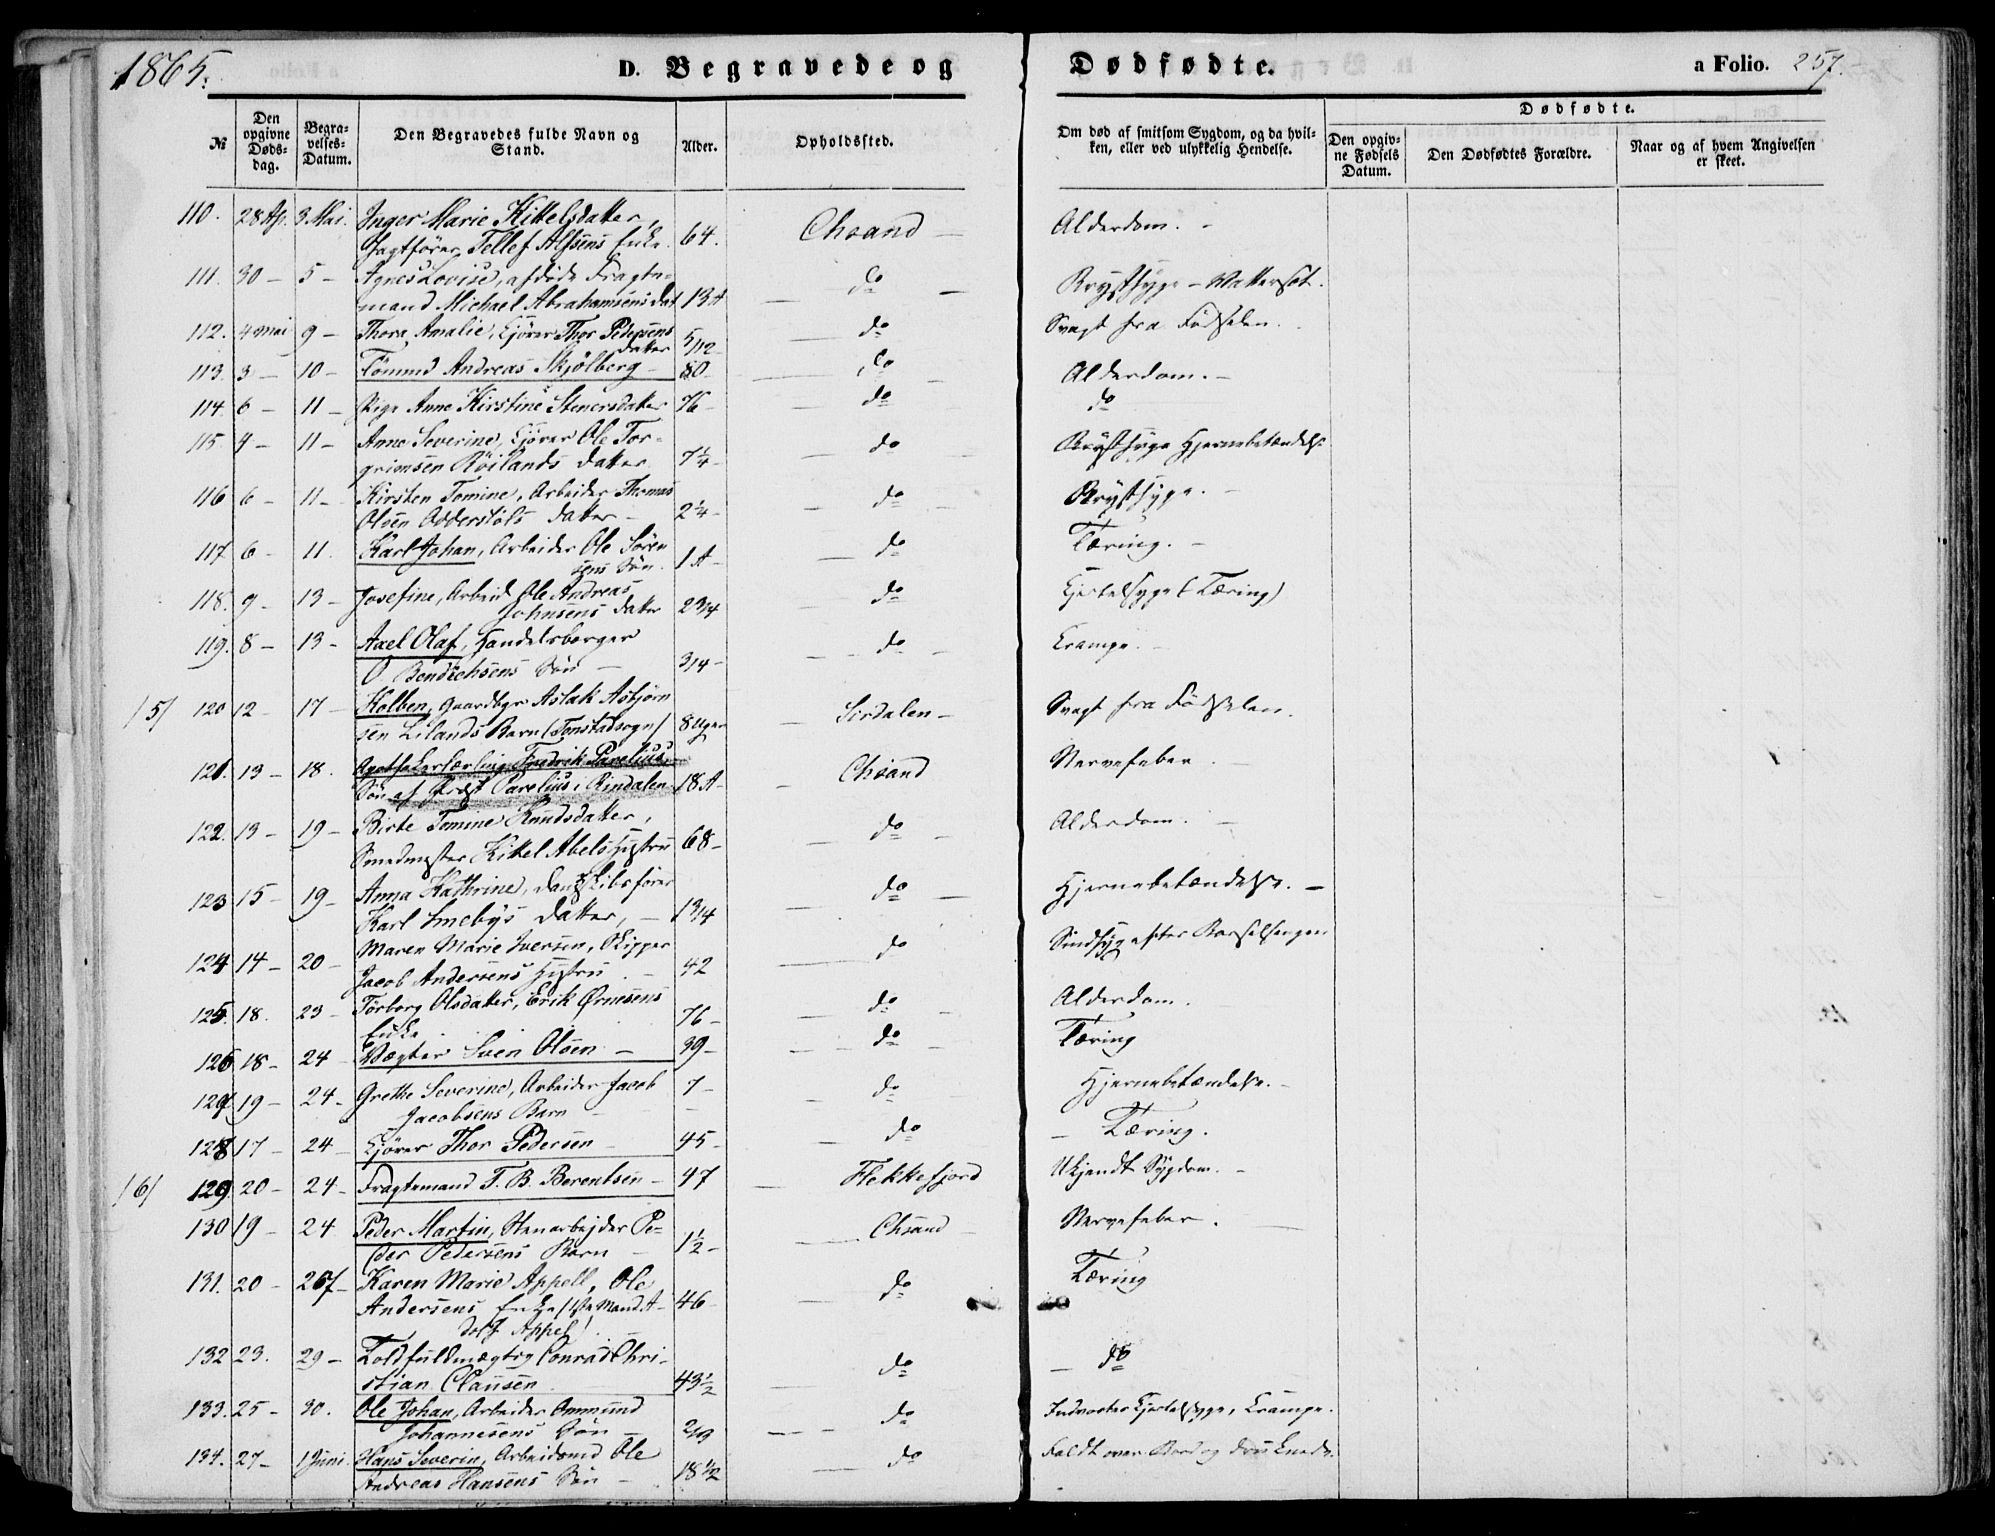 1865.
D. Begravede og Dødfødte. a Folio. 257.
№
Den opgivne Døds-dag.
Begra-velses-Datum.
Den Begravedes fulde Navn og Stand.
Alder.
Opholdssted.
Om død af smitsom Sygdom, og da hvil-
ken, eller ved ulykkelig Hendelse.
Dødfødte.
Den opgiv-
ne Fødsels
Datum.
Den Dødfødtes Forældre.
Naar og af hvem Angivelsen
er skeet.
110. 28 Ap. 3 Mai. Inger Marie Kittelsdatter,
Jagtfører Tellef Alfsens Enke. 64. Chsand — Alderdom. -
111. 30 - 5 - Agnes Lovise, afdøde Fragte-
mand Michael Abrahamsens Dat 13 A — do — Brystsyge - Vattersot.
112. 4 Mai 9 - Thora Amalie, Kjører Thor Pedersens
Datter 5/12 do Svagt fra Fødselen.
113. 3 - 10 - Tømmd Andreas Skjølberg - 80 — do Alderdom. -
114. 6 - 11 - Pige Anne Kirstine Stenersdatter 76 - do do
115. 4 - 11 - Anne Severine, Kjører Ole Tor-
grimsen Röilands Datter 7 1/4 - do Brystsyge Hjernebetændelse
116 6 - 11 - Kirsten Tomine, Arbeider Thomas
Olsen Odderstøls Datter - 2 1/4 - do Brystsyge. -
117. 6 - 11. Karl Johan, Arbeider Ole Sören
sens Søn. 1 A - do Tæring. -
118. 9 - 13 - Josefine, Arbeid Ole Andreas
Johnsens Datter 2 3/4 do Kjertelsyge (Tæring)
119. 8 - 13 - Axel Olaf, Handelsborger
O. Bendichsens Søn — 3/4 - do Krampe. -
/5/ 120 12 - 17 - Kolben, Gaardbgr Aslak Asbjørn
sen Lilands Barn (Tonstadsogn/ 8 Uger — Sirdalen - Svagt fra Fødselen.
121. 13 - 18. Apothekerlærling Fredrik Parelius,
Søn af Præst Parelius i Rindalen 18 A - Chsand Nervefeber
122. 13 - 19 - Birte Tomine Knudsdatter,
Smedmester Kittel Abels Hustru 68 - do Alderdom. —
123 15 - 19 - Anna Kathrine, Dansk Skibsfører
Karl Smebys Datter, — 1 3/4 do Hjernebetændelse. —
124 14 - 20 - Maren Marie Iversen, Skipper
Jacob Andersens Hustru. - 42 do Sindssyg efter Barselsengen
125. 18. 23 - Torborg Olsdatter, Erik Ormsens
Enke 76 - do Alderdom.
126 18 - 24 - Vægter Sven Olsen - 39 - do Tæring
127 19 - 24 - Grethe Severine, Arbeider Jacob
Jacobsens Barn 7 - do Hjernebetændelse. -
128 17 - 24 - Kjører Thor Pedersen - 45 - do — Tæring.
/6/ 129 20 - 24 - Fragtemand T. B. Berentsen - 47 — Flekkefjord Ukjendt Sygdom. -
130 19 - 24 Peder Martin, Stenarbejder Pe-
der Pedersens Barn - 1 1/2 - Chsand Nervefeber.
131. 20 - 267 - Karen Marie Appell, Ole
Andersens Enke (1ste Mand A-
dolf Appel). 46 - do Tæring
132 23. 29 - Toldfuldmægtig Conrad Chri-
stian Clausen 43 1/2 do — do
133. 25 - 30. Ole Johan, Arbeider Ommund
Johannesens Søn - 2/9 do Indvortes Kjertelsyge, Krampe.
134. 27 - 1 Juni. Hans Severin, Arbeidsmd Ole
Andreas Hansens Søn - 18 1/2 do Faldt over Bord og druknede.